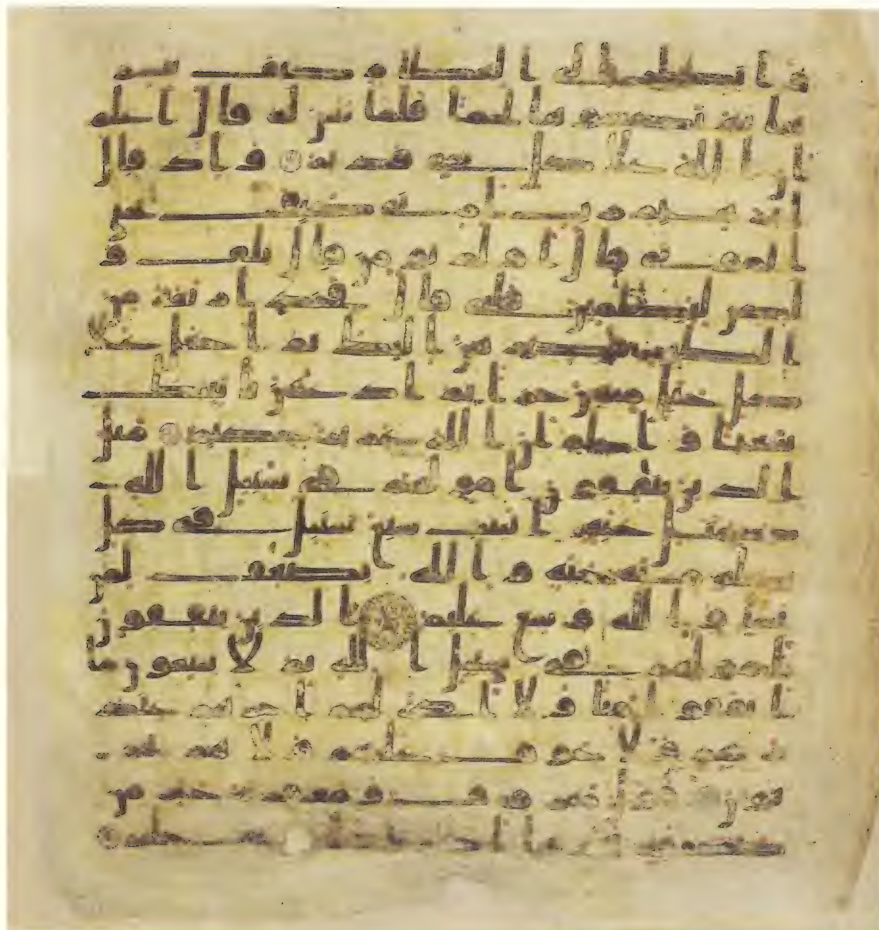 وانظر الى العظام كيف ننشز
ها ثم نكسوها لحما فلما تبين له قال اعلم
ان الله على كل شى قدير واذ قال
ابرهيم رب ارنى كيف تحى
الموتى قال اولم تومن قال بلى و
لكن ليطمئن قلبى قال فخذ اربعة من
الطير فصرهن اليك ثم اجعل على
كل جبل منهن جزا ثم ادعهن ياتينك
سعيا واعلم ان الله عزيز حكيم مثل
الذين ينفقون امولهم فى سبيل الله
كمثل حبة انبتت سبع سنبل فى كل
سنبلة مائة حبة والله يضعف لمن
يشا والله وسع عليم الذين ينفقون
امولهم فى سبيل الله ثم لا يتبعون ما
انفقوا منا ولا اذى لهم اجرهم عند
ربهم ولا خوف عليهم ولا هم يحز
نون قول معروف ومغفرة خير من
صدقة يتبعها اذى والله غنى حليم